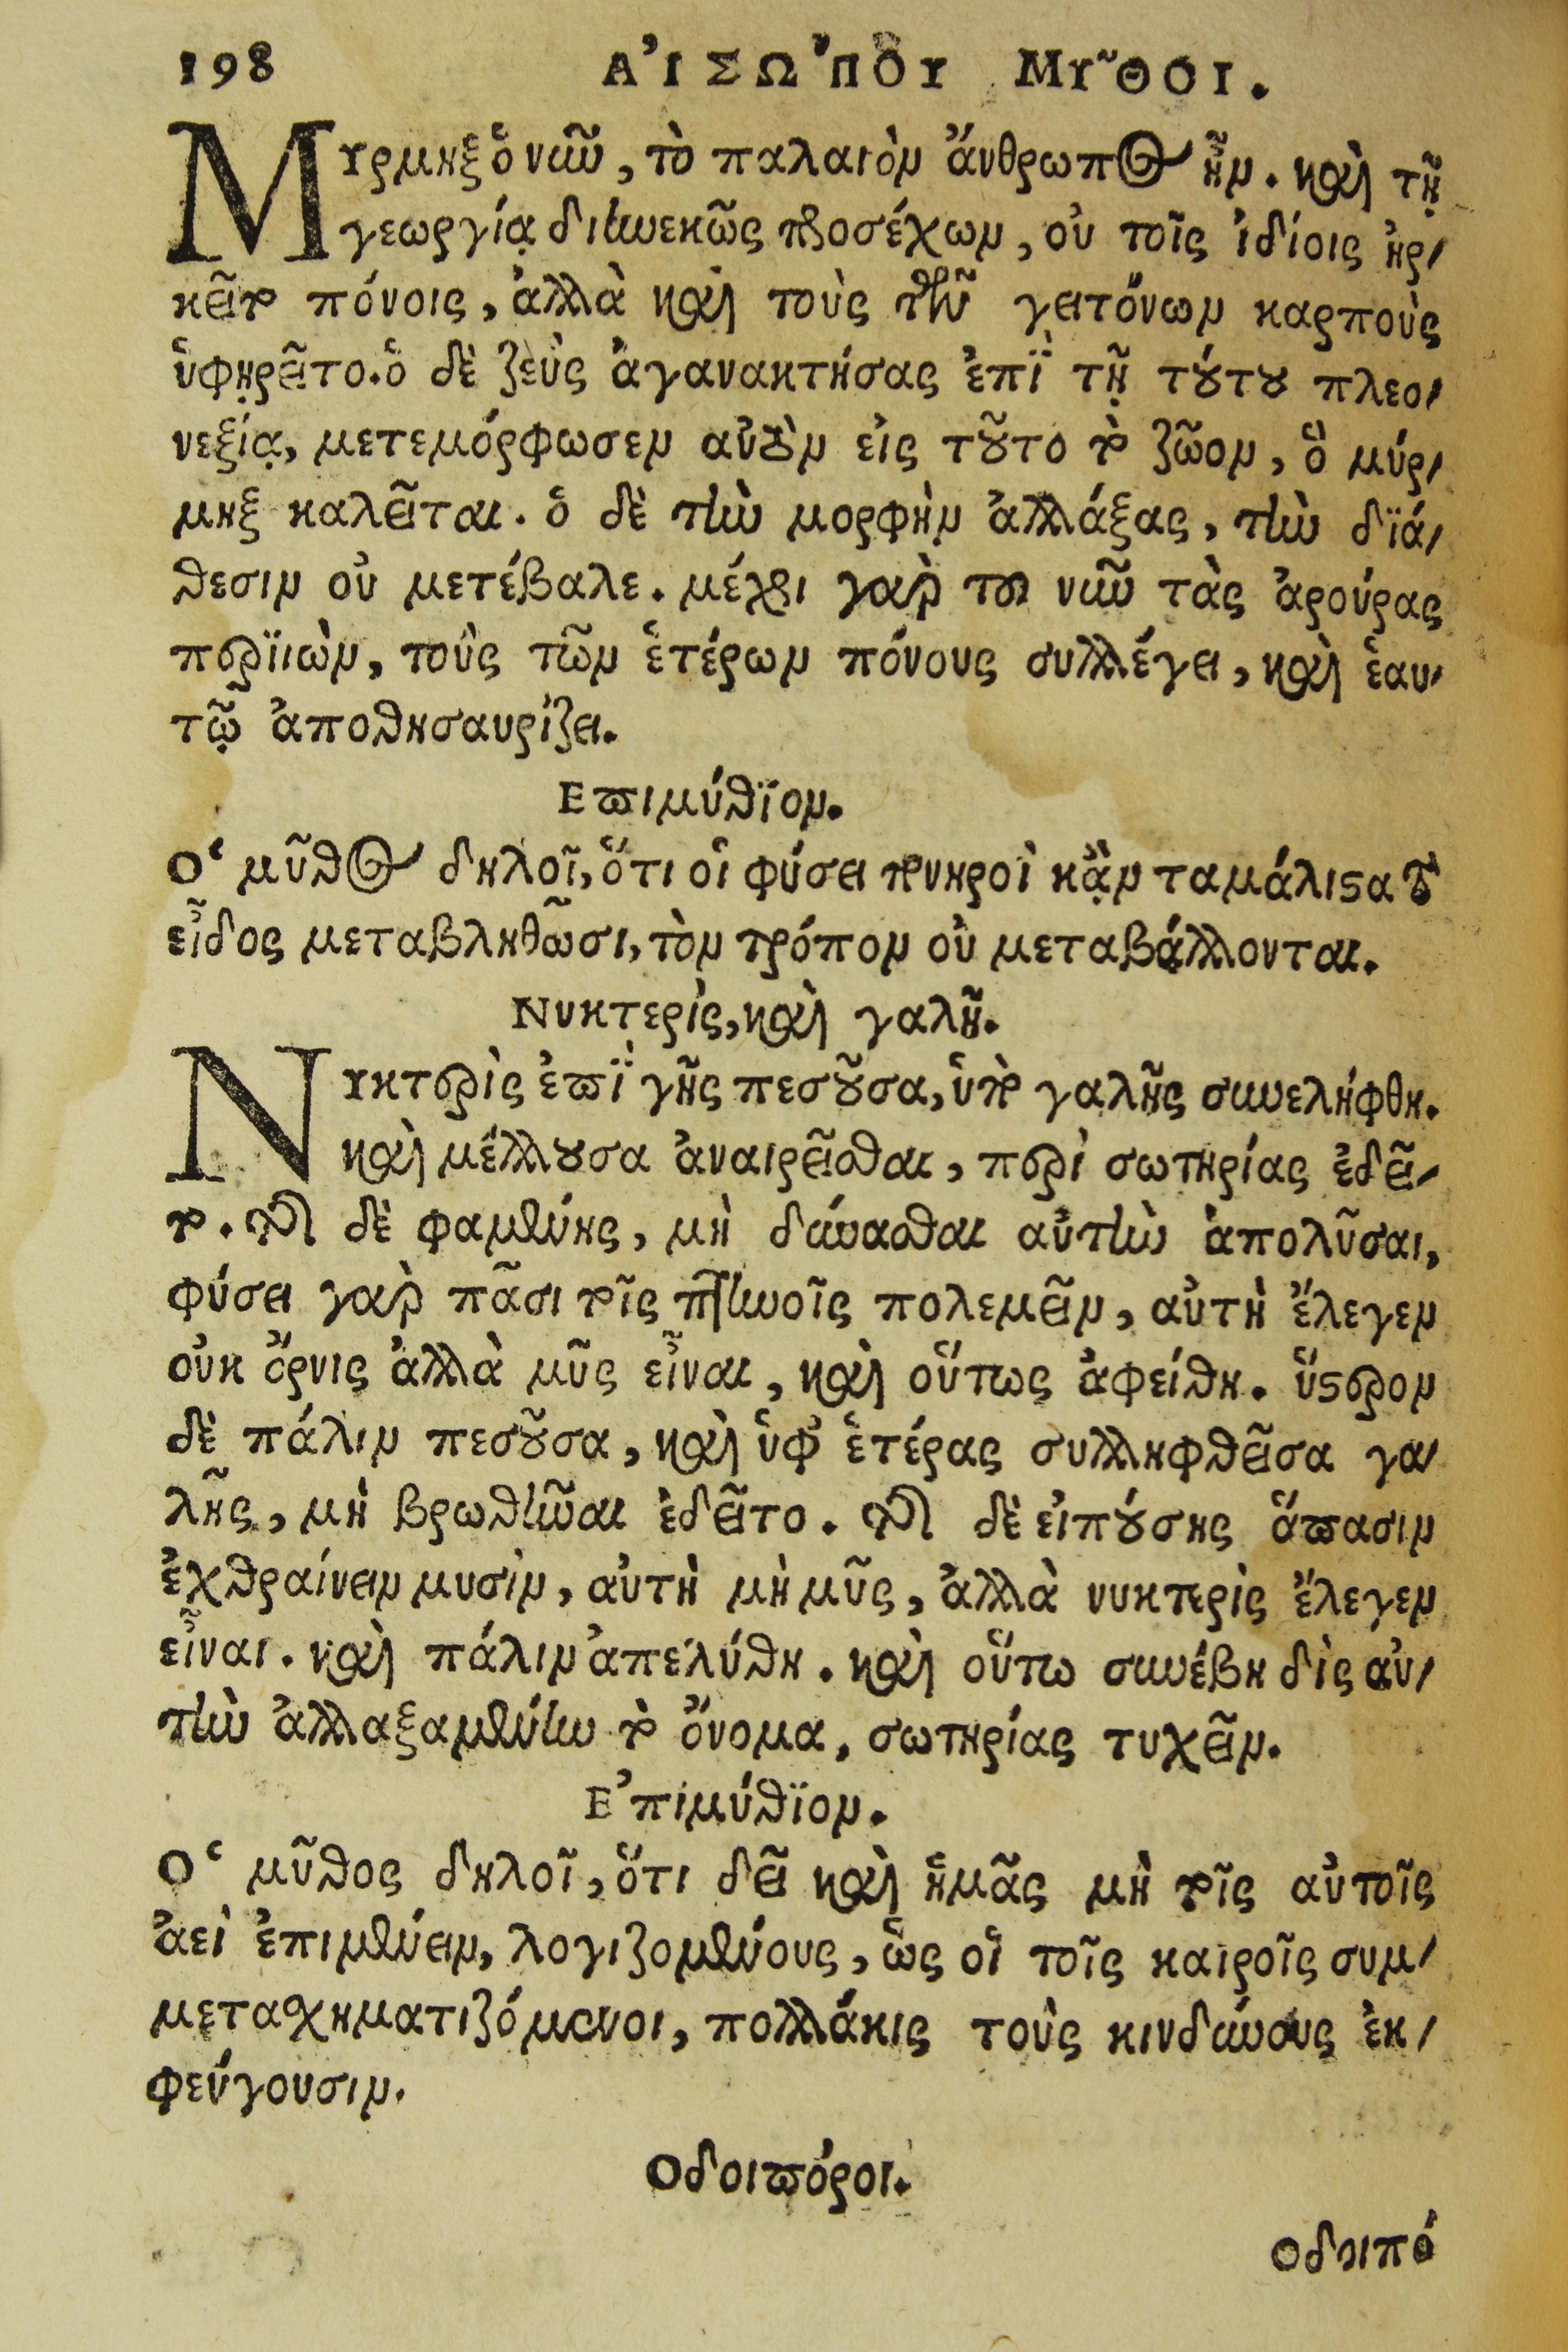 198 ΑἸΣΩ´ΠΟΥ ΜΥ͂ΘΟΙ.
ΜΥρμηξ ὁ νῦν, τὸ παλαιὸν ἄνθρωπος ἦν. καὶ τῇ
γεωργίᾳ διηνεκῶς προσέχων, οὐ τοῖς ἰδίοις ἠρ-
κεῖτο πόνοις, ἀλλὰ καὶ τοὺς τῶν γειτόνων καρποὺς
ὑφῃρεῖτο. ὁ δὲ ζεὺς ἀγανακτήσας ἐπῒ τῇ τούτου πλεο-
νεξίᾳ, μετεμόρφωσεν αὐτὸν εἰς τοῦτο τὸ ζῶον, ὃ μύρ-
μηξ καλεῖται. ὁ δὲ τὴν μορφὴν ἀλλάξας, τὴν δϊά-
θεσιν οὐ μετέβαλε. μέχρι γὰρ τοῦ νῦν τὰς ἀρούρας
περϊιὼν, τοὺς τῶν ἑτέρων πόνους συλλέγει, καὶ ἑαυ-
τῷ ἀποθησαυρίζει.
Επιμύθϊον.
Ὁ μῦθος δηλοῖ, ὅτι οἱ φύσει πονηροὶ κᾂν ταμάλιστα τὸ
εἶδος μεταβληθῶσι, τὸν τρόπον οὐ μεταβάλλονται.
Νυκτερὶς, καὶ γαλῆ.
ΝΥκτερὶς ἐπῒ γῆς πεσοῦσα, ὑπὸ γαλῆς συνελήφθη.
καὶ μέλλουσα ἀναιρεῖσθαι, περὶ σωτηρίας ἐδεῖ-
το. τῆς δὲ φαμένης, μὴ δύνασθαι αὐτὴν ἀπολῦσαι,
φύσει γὰρ πᾶσι τοῖς πτηνοῖς πολεμεῖν, αὐτὴ ἔλεγεν
οὐκ ὄρνις ἀλλὰ μῦς εἶναι, καὶ οὕτως ἀφείθη. ὕστερον
δὲ πάλιν πεσοῦσα, καὶ ὑφ' ἑτέρας συλληφθεῖσα γα-
λῆς, μὴ βρωθῆναι ἐδεῖτο. τῆς δὲ εἰπούσης ἅπασιν
ἐχθραίνειν μυσὶν, αὐτὴ μὴ μῦς, ἀλλὰ νυκτερὶς ἔλεγεν
εἶναι. καὶ πάλιν ἀπελύθη. καὶ οὕτω συνέβη δὶς αὐ-
τὴν ἀλλαξαμένην τὸ ὄνομα, σωτηρίας τυχεῖν.
Ἐπιμύθϊον.
Ὁ μῦθος δηλοῖ, ὅτι δεῖ καὶ ἡμᾶς μὴ τοῖς αὐτοῖς
ἀεὶ ἐπιμένειν, λογιζομένους, ὡς οἱ τοῖς καιροῖς συμ-
μετασχηματιζόμενοι, πολλάκις τοὺς κινδύνους ἐκ-
φεύγουσιν.
Οδοιπόροι.
Οδοιπό